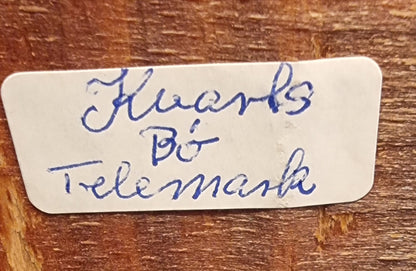 Kvarts
Bö
Telemark